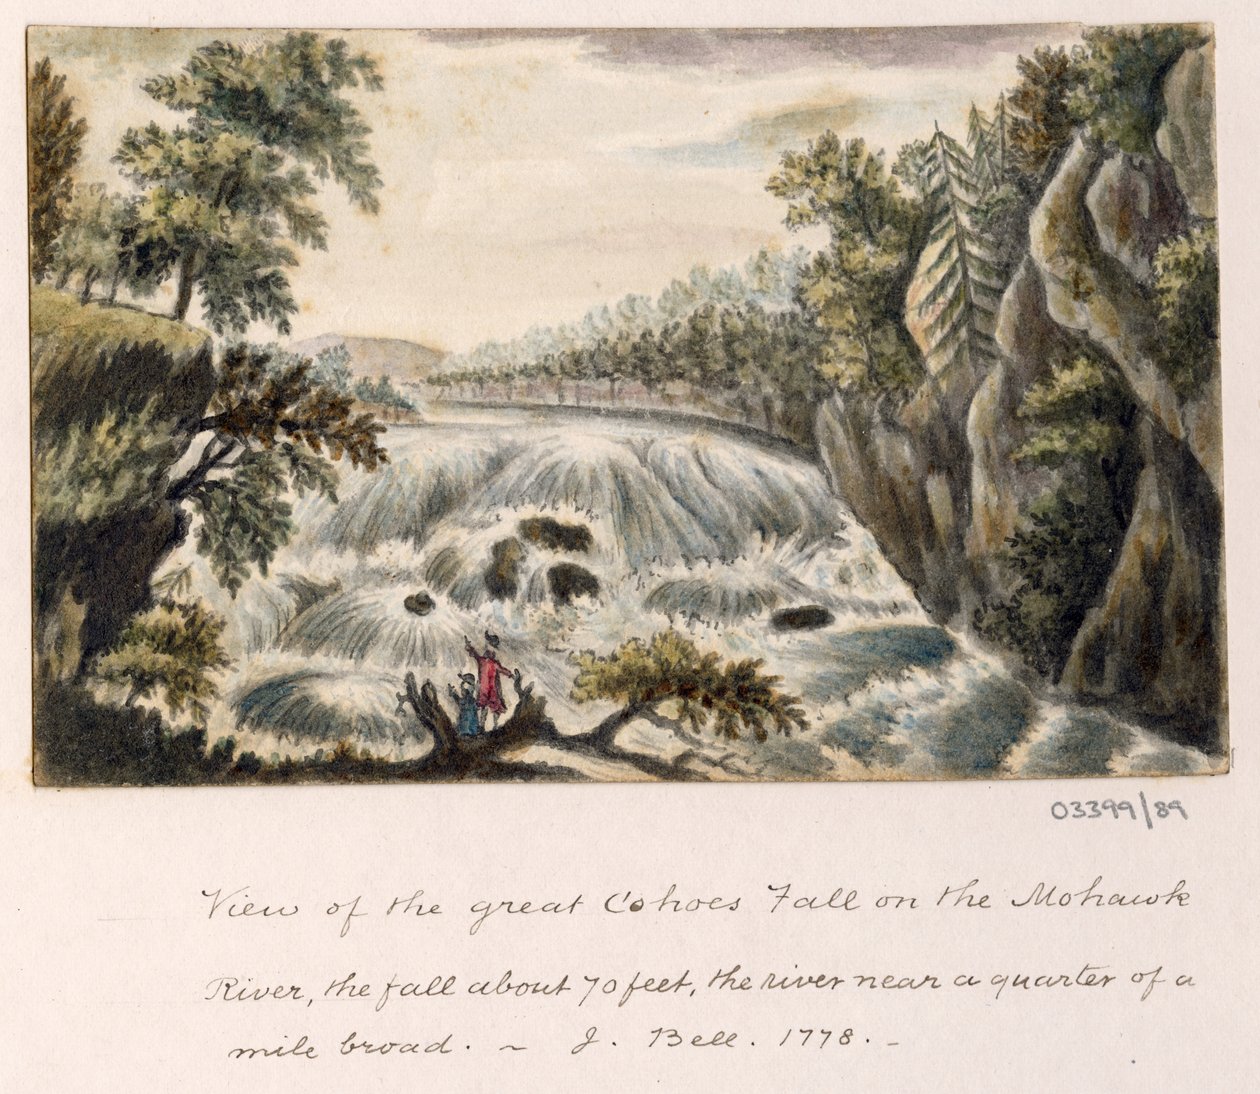 03399/89
View of the great Cohoes Fall on the Mohawk
River, the fall about 70 feet, the river near a quarter of a
mile broad. ~ J. Bell. 1778. -